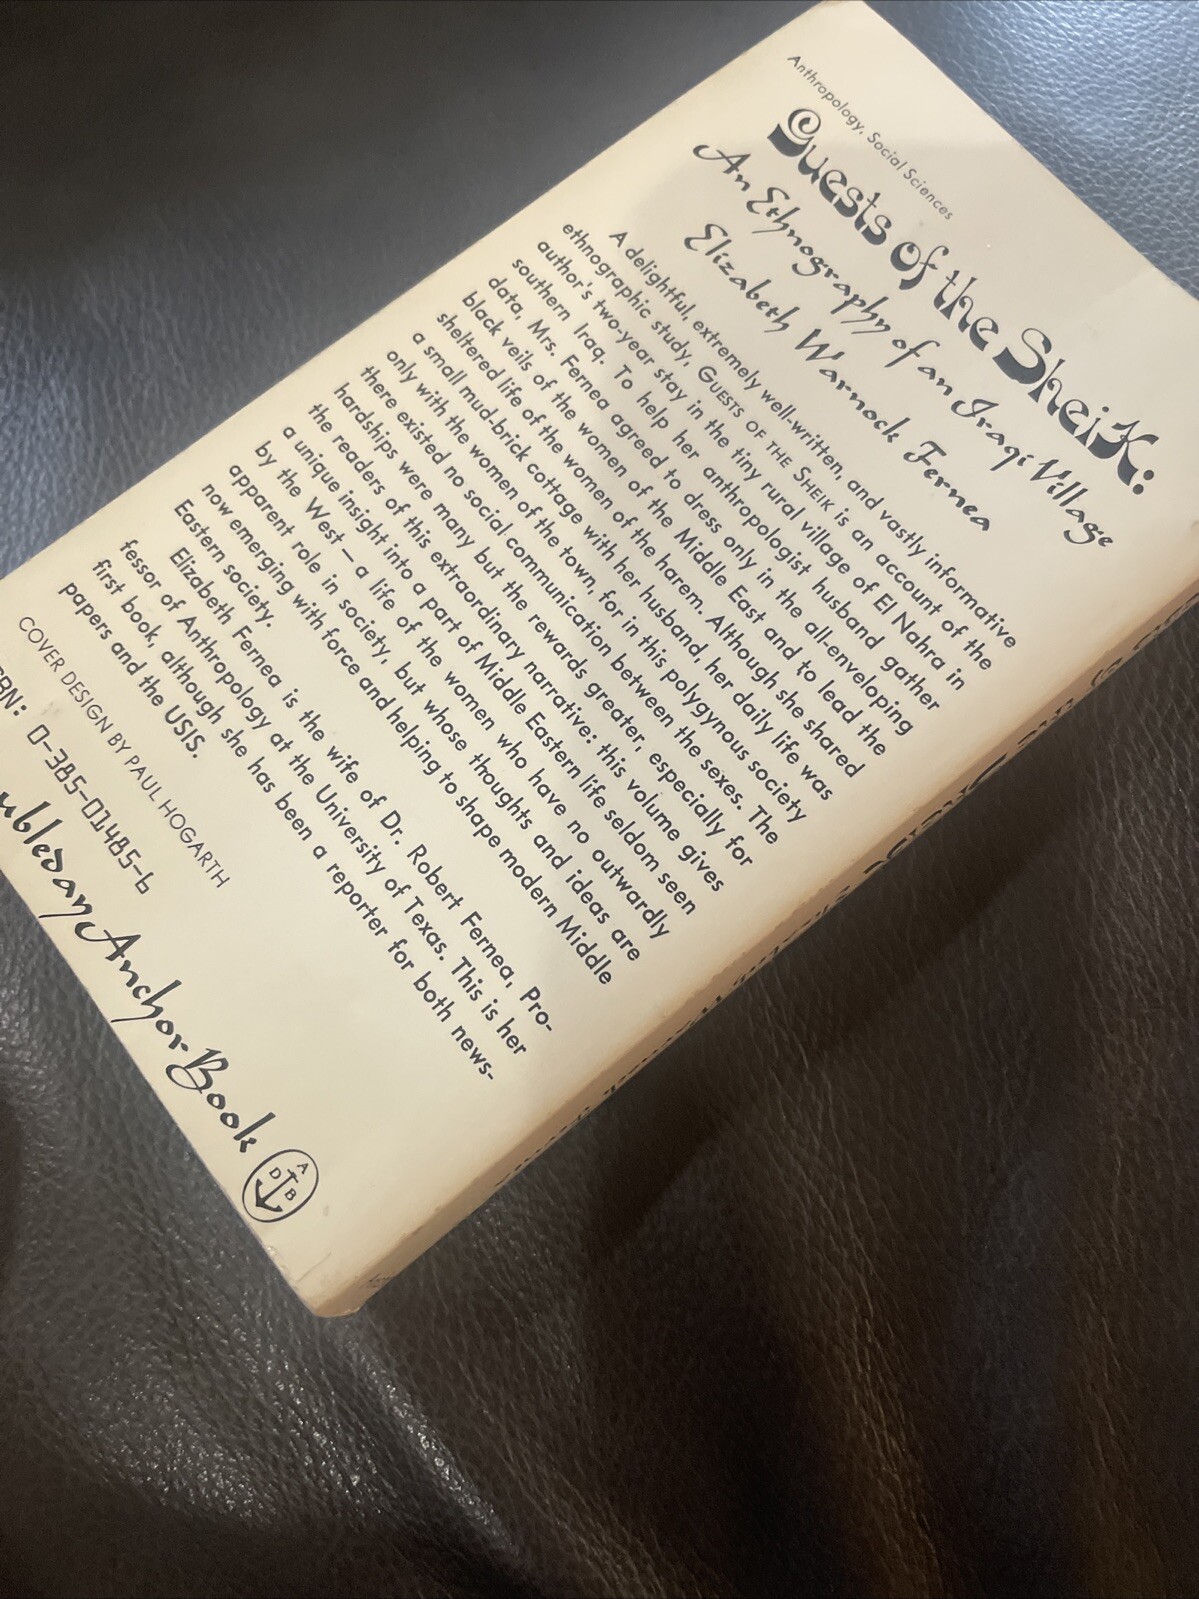 Anthropology, Social Sciences
Guests of the Sheik:
An Ethnography of an Iraqi Village
Elizabeth Warnock Fernea
A delightful, extremely well-written, and vastly informative
ethnographic study, GUESTS OF THE SHEIK is an account of the
author's two-year stay in the tiny rural village of El Nahra in
southern Iraq. To help her anthropologist husband gather
data, Mrs. Fernea agreed to dress only in the all-enveloping
black veils of the women of the Middle East and to lead the
sheltered life of the women of the harem. Although she shared
a small mud-brick cottage with her husband, her daily life was
only with the women of the town, for in this polygynous society
there existed no social communication between the sexes. The
hardships were many but the rewards greater, especially for
the readers of this extraordinary narrative: this volume gives
a unique insight into a part of Middle Eastern life seldom seen
by the West — a life of the women who have no outwardly
apparent role in society, but whose thoughts and ideas are
now emerging with force and helping to shape modern Middle
Eastern society.
Elizabeth Fernea is the wife of Dr. Robert Fernea, Pro-
fessor of Anthropology at the University of Texas. This is her
first book, although she has been a reporter for both news-
papers and the USIS.
COVER DESIGN BY PAUL HOGARTH
BN: 0-385-01485-6
ubleday Anchor Book
A
D B